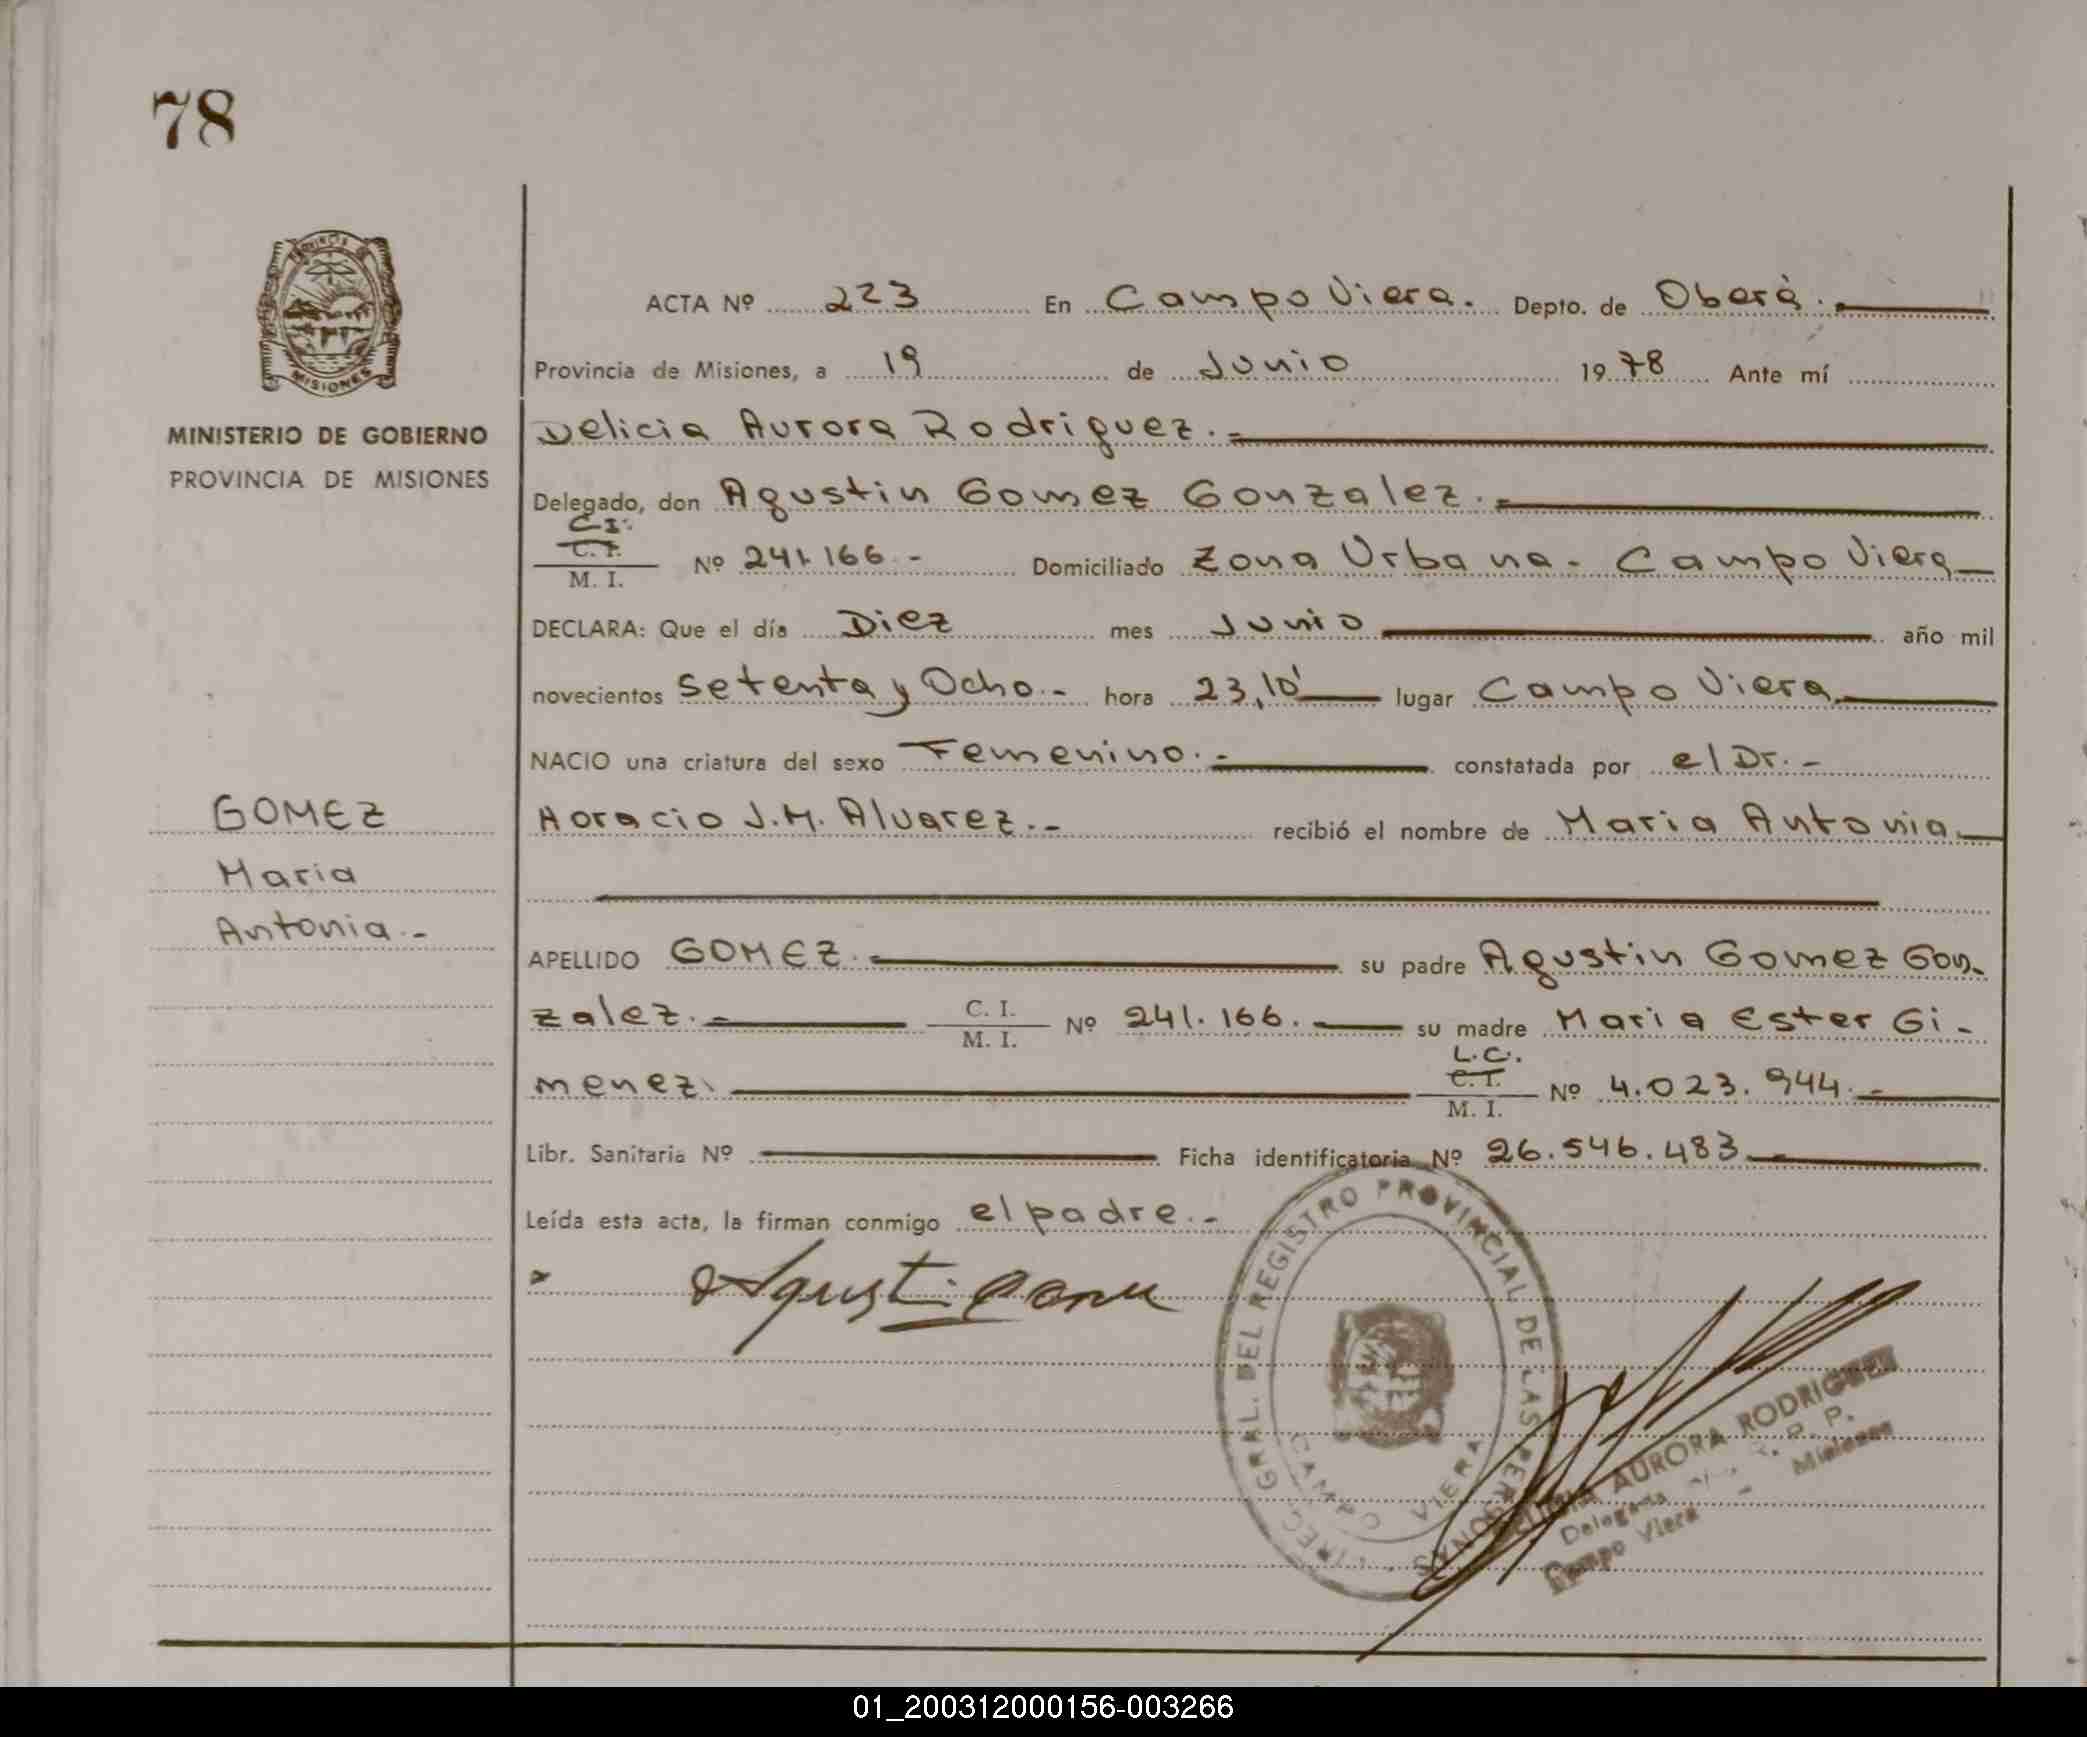 78
PROVINCIA DE
MISIONES
MINISTERIO DE GOBIERNO
PROVINCIA DE MISIONES
GOMEZ
Maria
Antonia.-
ACTA Nº 223 En Campo Viera. Depto. de Oberá.
Provincia de Misiones, a 19 de Junio 1978 Ante mí
Delicia Aurora Rodriguez.-
Delegado, don Agustin Gomez Gonzalez.-
C.I.
C. I.
M. I. Nº 241.166.- Domiciliado Zona Urbana. Campo Viera
DECLARA: Que el día Diez mes Junio año mil
novecientos setenta y Ocho.- hora 23,10' lugar Campo Viera
NACIO una criatura del sexo Femenino.- constatada por el Dr.-
Horacio J.M. Alvarez.- recibió el nombre de Maria Antonia
APELLIDO GOMEZ.- su padre Agustin Gomez Gon-
zalez.- C. I. M. I. Nº 241.166.- su madre Maria Ester Gi-
menez. L.C. C. I. M. I. Nº 4.023.944.-
Libr. Sanitaria Nº Ficha identificatoria Nº 26.546.483.-
Leída esta acta, la firman conmigo el padre.-
Agustin
DIREC. GRAL. DEL REGISTRO PROVINCIAL DE LAS PERSONAS
CAMPO VIERA
AURORA RODRIGUEZ
Delegada R. P. P.
Campo Viera - Misiones
01_200312000156-003266